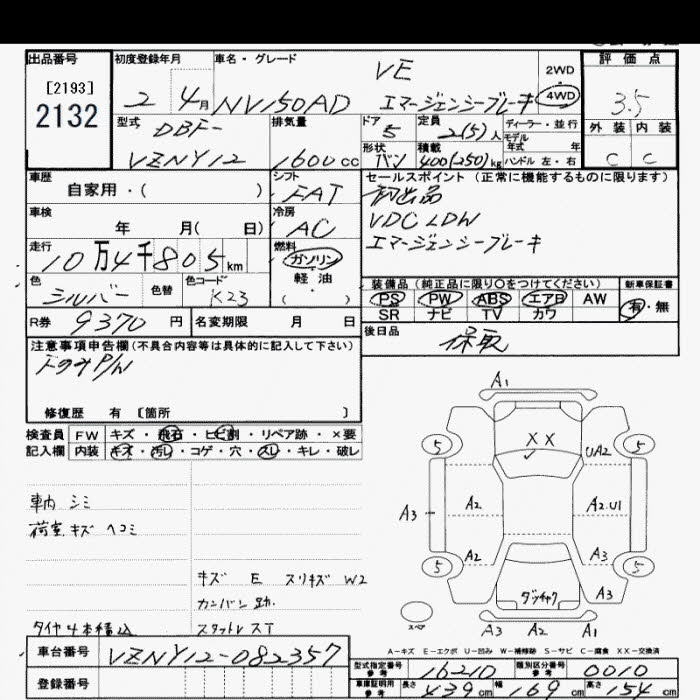 出品番号 初度登録年月 車名・グレード 評価点
[2193]
2132
2 4月 NV150AD VE エマージェンシーブレーキ 2WD 4WD 3.5
型式 排気量 ドア 定員 ディーラー・並行 外装 内装
DBF-VZNY12 1600cc 5 2(5)人 モデル年式 年
形状 積載 ハンドル 左・右 C C
バン 400(250)kg
車歴 シフト セールスポイント(正常に機能するものに限ります)
自家用・( ) FAT 初出品
車検 冷房 VDC LDW
年 月( 日) AC エマージェンシーブレーキ
走行 燃料
10万4千805km ガソリン
軽油
( )
色 色替 色コード 装備品(純正品に限り〇をつけてください) 新車保証書
シルバー K23 PS PW ABS エアB AW 有・無
SR ナビ TV カワ
R券 9370円 名変期限 月 日 後日品
保取
注意事項申告欄(不具合内容等は具体的に記入して下さい)
下のみP/W
修復歴 有 〔箇所 〕
検査員 FW キズ・飛石・ヒビ割・リペア跡・×要
記入欄 内装 キズ・汚レ・コゲ・穴・スレ・キレ・破レ
A1
5 XX UA2 5
A3 A2 A2.U1
5 A2 A3 5
ダッチャク A3
スペア A3 A2 A1
車内 シミ
荷室 キズ ヘコミ
キズ E スリキズ W2
カンバン跡
タイヤ4本積込 スタットレスT
A-キズ E-エクボ U-凹み W-補修跡 S-サビ C-腐食 XX-交換済
車台番号 VZNY12-082357
登録番号
型式指定番号 参考 16210 類別区分番号 参考 0010
車庫証明用 参考 長さ 439cm 幅 169cm 高さ 154cm